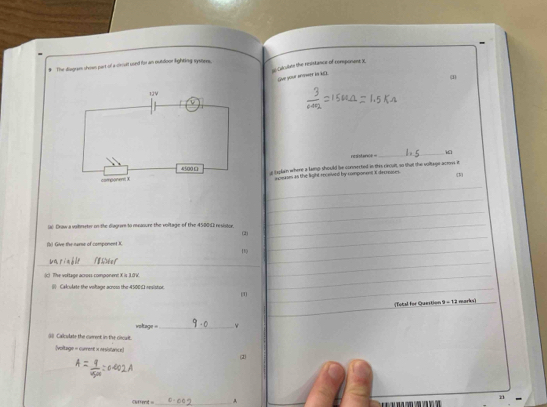 9 The diagram shows part of a circuit used for an outdoor lighting system.
12V
V
4500Ω
component X
(a) Draw a voltmeter on the diagram to measure the voltage of the 4500Ω resistor.
(2)
(b) Give the name of component X.
(1)
variable resistor
(c) The voltage across component X is 3.0V.
(i) Calculate the voltage across the 4500Ω resistor.
(1)
voltage = 9.0 V
(ii) Calculate the current in the circuit.
[voltage = current × resistance]
(2)
A = 9/4500 = 0.002A
current = 0.002 A
(iii) Calculate the resistance of component X.
Give your answer in kΩ.
(3)
3/0.002 = 1500Ω = 1.5KΩ
resistance = 1.5 kΩ
(d) Explain where a lamp should be connected in this circuit, so that the voltage across it
increases as the light received by component X decreases.
(3)
(Total for Question 9 = 12 marks)
23